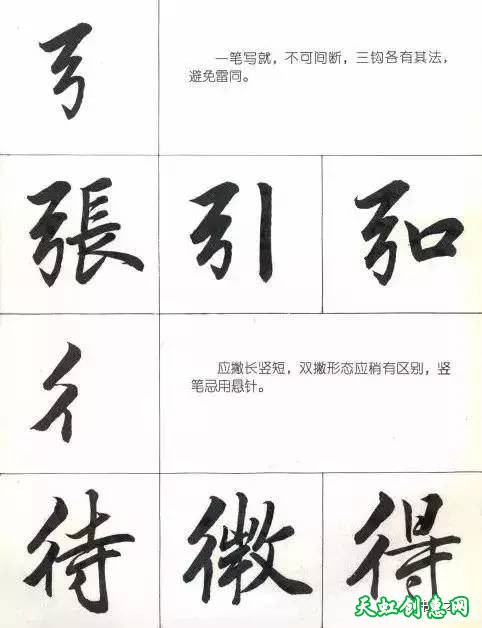 弓
一笔写就，不可间断，三钩各有其法，
避免雷同。
張 引 弘
彳
应撇长竖短，双撇形态应稍有区别，竖
笔忌用悬针。
待 微 得
书
天虹创意网